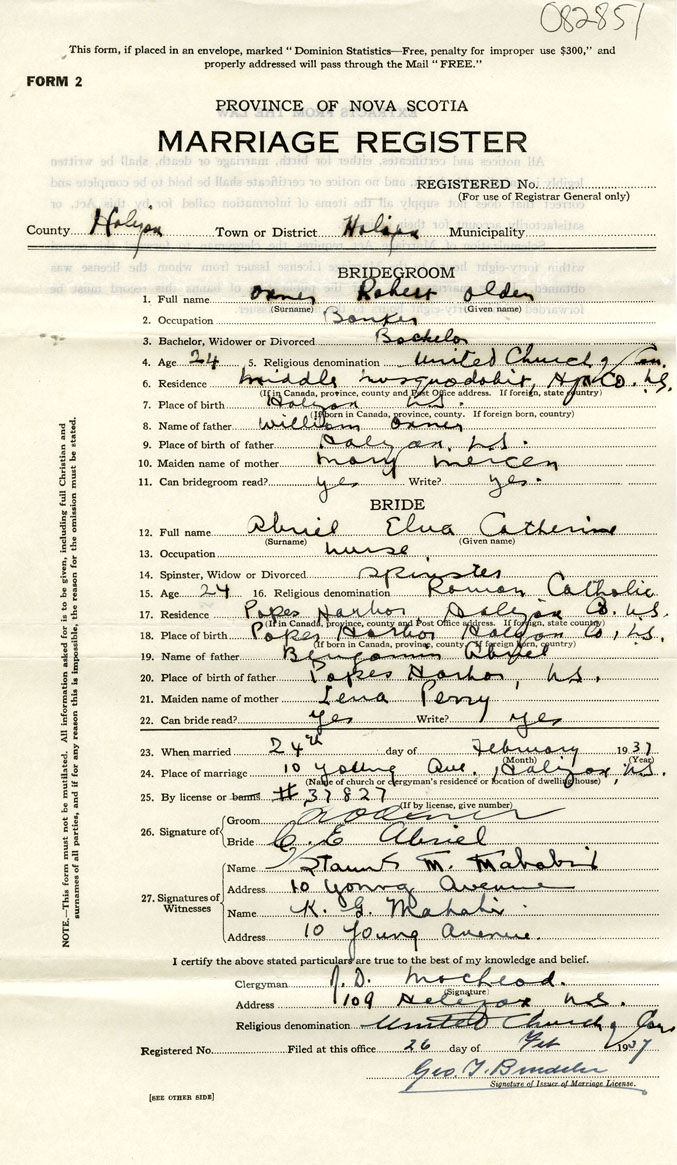 082851
This form, if placed in an envelope, marked "Dominion Statistics—Free, penalty for improper use $300," and
properly addressed will pass through the Mail "FREE."
FORM 2
PROVINCE OF NOVA SCOTIA
MARRIAGE REGISTER
REGISTERED No.
(For use of Registrar General only)
County Halifax Town or District Halifax Municipality
BRIDEGROOM
1. Full name Oxner Robert Olden
(Surname) (Given name)
2. Occupation Banker
3. Bachelor, Widower or Divorced Bachelor
4. Age 24 5. Religious denomination United Church of Can.
6. Residence Middle Musquodobit, Hfx Co. N.S.
(If in Canada, province, county and Post Office address. If foreign, state country)
7. Place of birth Halifax N.S.
(If born in Canada, province, county. If foreign born, country)
8. Name of father William Oxner
9. Place of birth of father Halifax, N.S.
10. Maiden name of mother Mary
11. Can bridegroom read? yes Write? yes.
BRIDE
12. Full name Abriel Elva Catherine
(Surname) (Given name)
13. Occupation nurse
14. Spinster, Widow or Divorced spinster
15. Age 24 16. Religious denomination Roman Catholic
17. Residence Popes Harbor Halifax Co. N.S.
(If in Canada, province, county and Post Office address. If foreign, state country)
18. Place of birth Popes Harbor Halifax Co, N.S.
(If born in Canada, province, county. If foreign born, country)
19. Name of father Benjamin Abriel
20. Place of birth of father Popes Harbor, N.S.
21. Maiden name of mother Lena Perry
22. Can bride read? yes Write? yes
23. When married 24th day of February 1937
(Month) (Year)
24. Place of marriage 10 Young Ave., Halifax, N.S.
(Name of church or clergyman's residence or location of dwelling house)
25. By license or banns # 37827
(If by license, give number)
26. Signature of
Groom
Bride C. E Abriel
27. Signatures of Witnesses
Name M.
Address 10 Young Avenue
Name K. G.
Address 10 Young Avenue.
I certify the above stated particulars are true to the best of my knowledge and belief.
Clergyman J. D. MacLeod.
(Signature)
Address 109 Halifax N.S.
Religious denomination United Church of Can
Registered No. Filed at this office 26 day of Feb 1937
Geo. T.
Signature of Issuer of Marriage License.
[SEE OTHER SIDE]
NOTE.—This form must not be mutilated. All information asked for is to be given, including full Christian and
surnames of all parties, and if for any reason this is impossible, the reason for the omission must be stated.